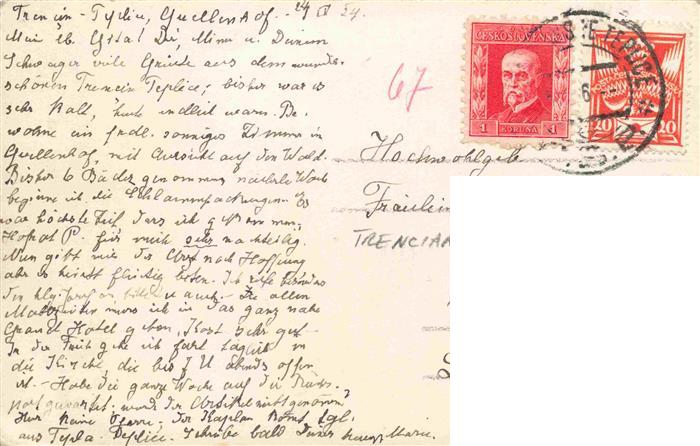 Trencin-Teplic, Quellenhof. 24 IV 24.
Mein lb. Dir, Minna u.
Schwager viele Grüsse aus dem wunder-
schönen Trencin Teplic; bisher war es
sehr kalt, heute endlich warm. Be
wohne ein frdl. sonniges Zimmer im
Quellenhof, mit Aussicht auf den Wald.
Bisher 6 Bäder genommen nächste Woche
beginne ich die Schlammpackungen. Es
war höchste Zeit, dass ich
Hofrat P. für mich sehr nachteilig.
Nun gibt mir der Arzt noch Hoffnung
aber es heisst fleissig beten. Ich
den hlg. Josef an bitte u auch. Zu allen
Mahlzeiten muss ich in das ganz nahe
Grand Hotel gehen, Kost sehr gut
In der Früh gehe ich fast täglich in
die Kirche, die bis 7 U abends offen
ist. - Habe die ganze Woche auf die
gewartet, wurde der Artikel nicht genommen?
Hier keine Pfarre. Der Kaplan kommt tgl.
aus Tepla. Teplic. Schreibe bald Deiner Marie.
67
ČESKOSLOVENSKÁ
1 KORUNA 1
20 20
TEPLICE
Hochwohlgeb
Fräulein
TRENCIAN